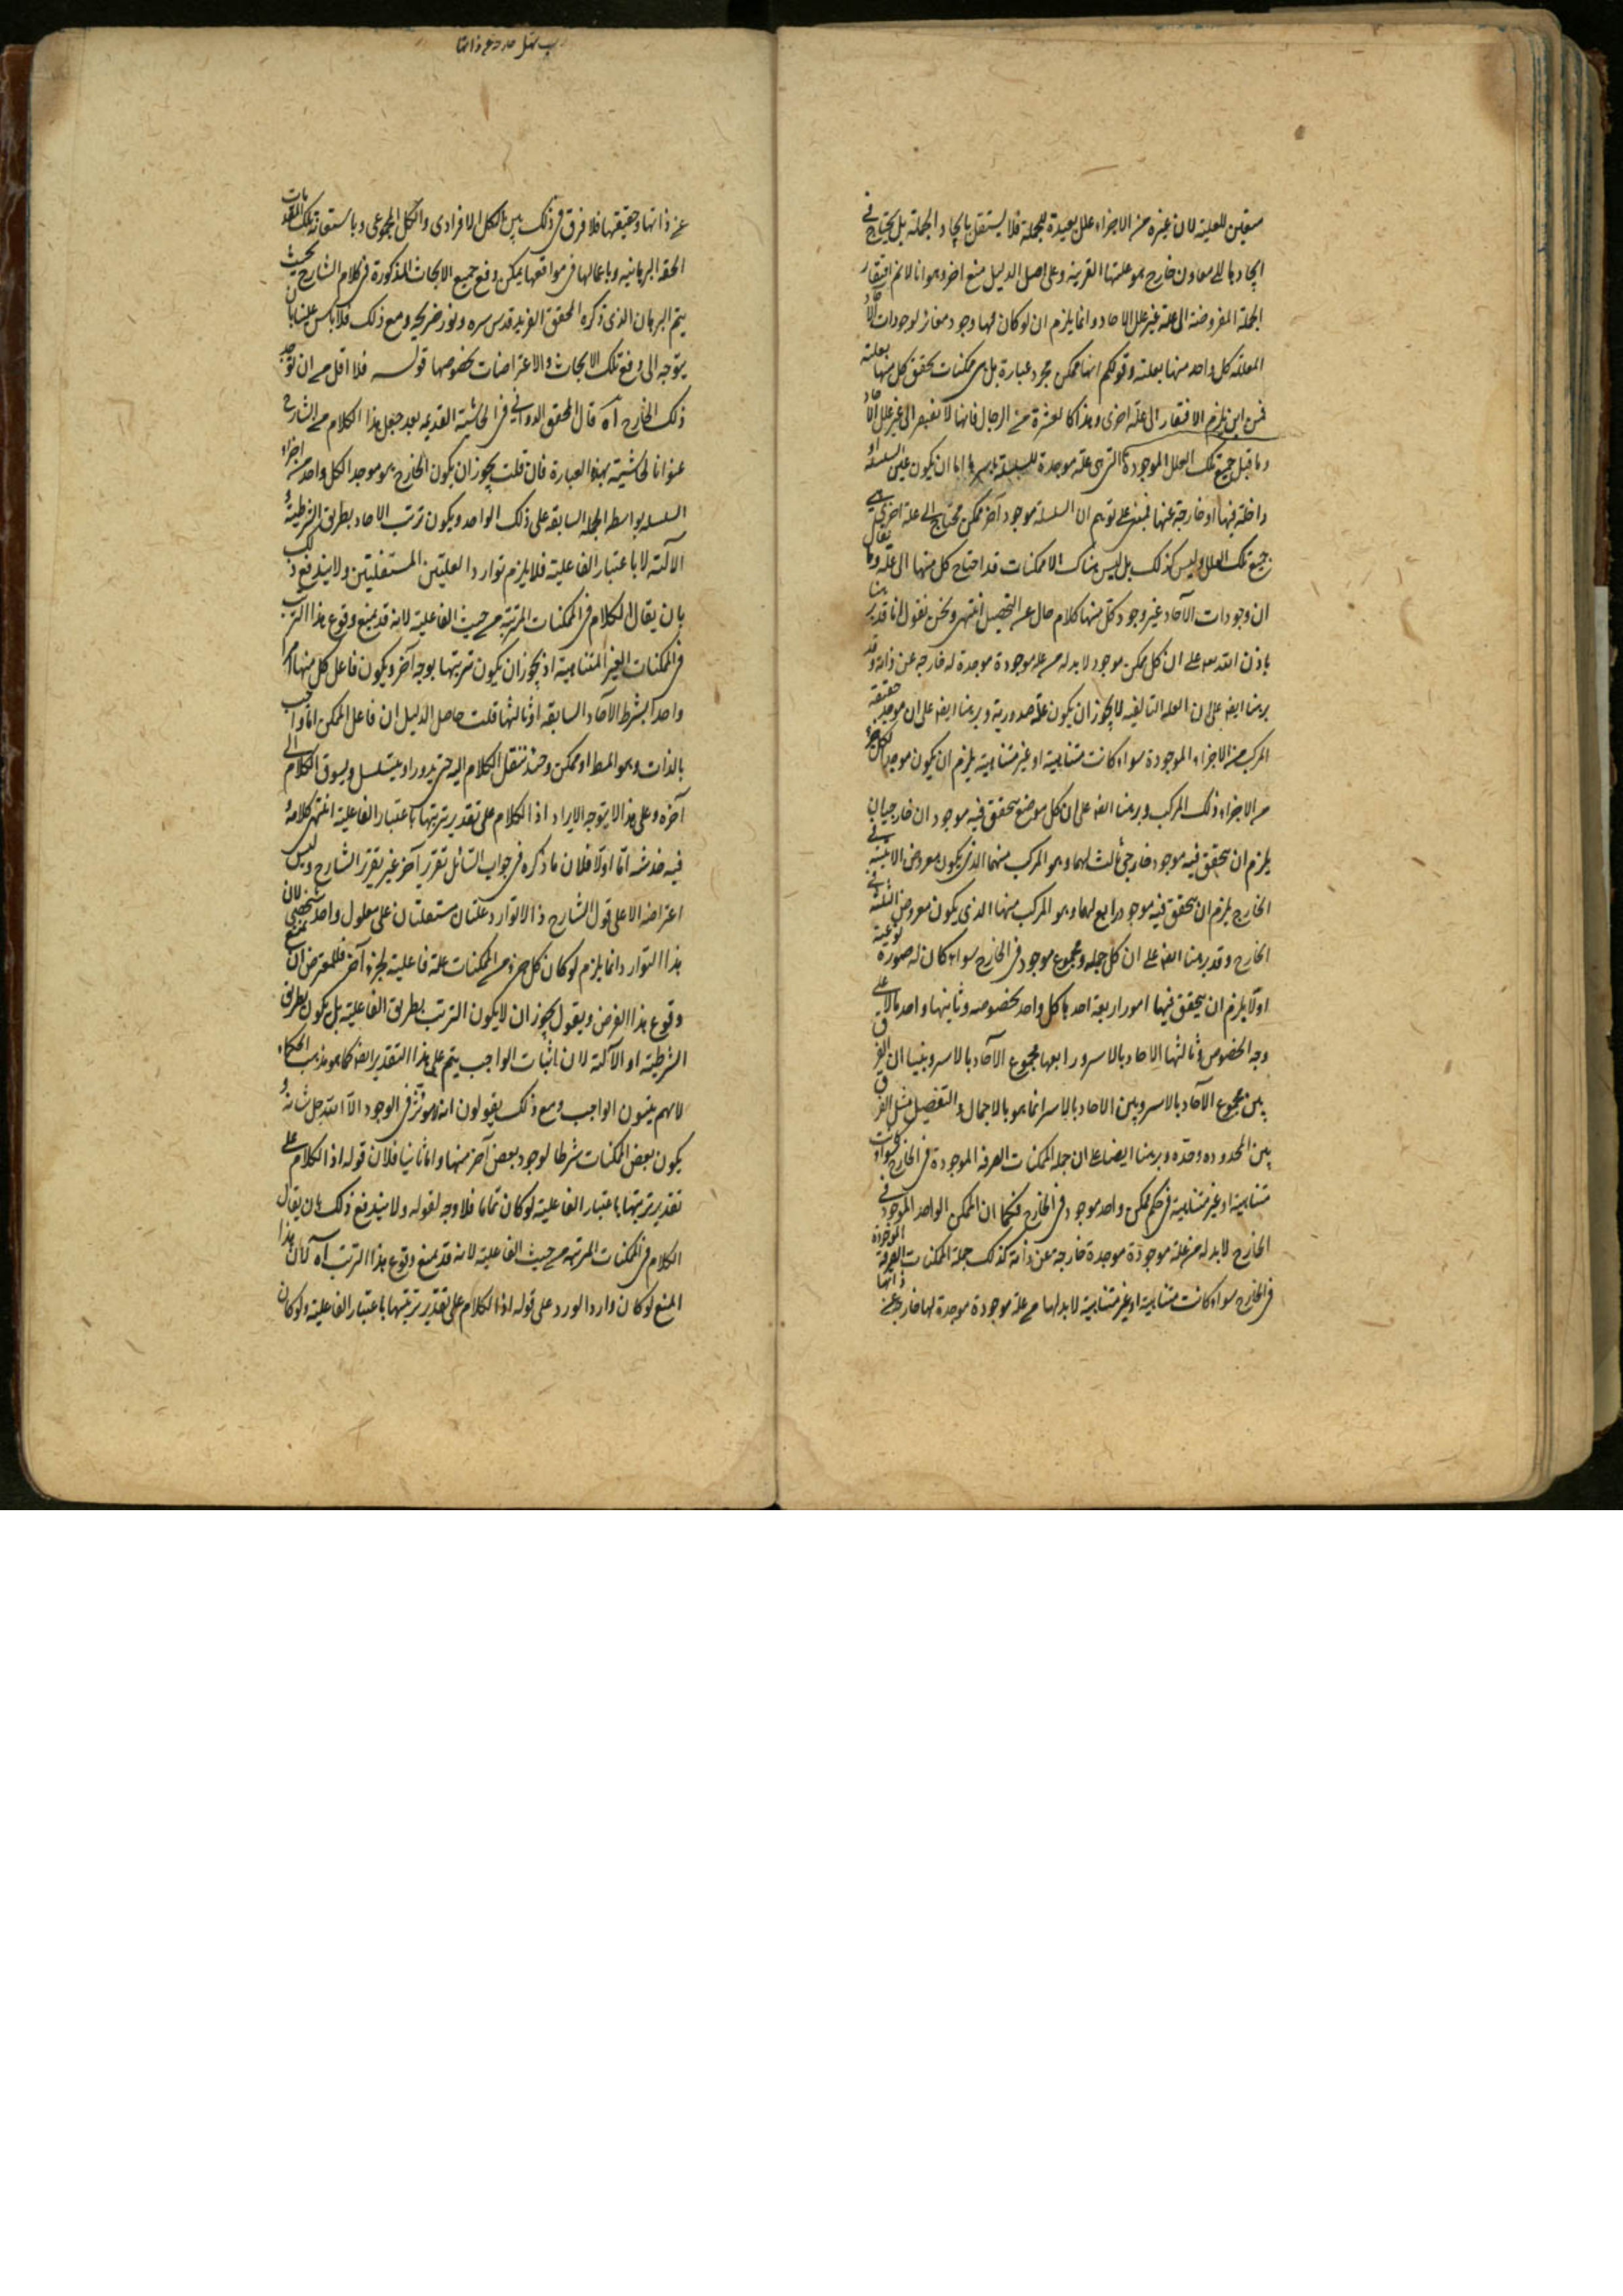 متعين للعلية لان غيره من الاجزاء علل بعيدة للجملة فلا يستقل بايجاد الجملة بل يحتاج في
ايجادها الى معاون خارج هو علتها القريبة وعلى اصل الدليل منع اخر وهو انا لا نم افتقار
الجملة المفروضة الى علة غير علل الاحاد وانما يلزم ان لو كان لها وجود مغاير لوجودات الآحاد
المعللة كل واحد منها بعلته وقولكم انها ممكن مجرد عبارة بل هي ممكنات تحقق كل منها بعلته
فمن اين يلزم الافتقار الى علة اخرى وهذا كالعشرة من الرجال فانها لا تفتقر الى غير علل الآحاد
وما قيل جميع تلك العلل الموجودة التي هي علة موجدة للسلسلة باسرها اما ان يكون عين السلسلة او
داخلة فيها او خارجة عنها فمبنى على توهم ان السلسلة موجود آخر ممكن محتاج الى علة اخرى هي
جميع تلك العلل وليس كذلك بل ليس هناك الا ممكنات قد احتاج كل منها الى علة وما يقال
ان وجودات الآحاد غير وجود كل منها كلام خال عن التحصيل انتهى ونحن نقول انا قد برهنا
باذن الله تعه على ان كل ممكن موجود لا بد له من علة موجودة موجدة له خارجة عن ذاته وقد
برهنا ايضه على ان العلة التأليفيه لا يجوز ان يكون علة صدورية وبرهنا ايضه على ان موجد حقيقة
المركب من الاجزاء الموجودة سواء كانت متناهية او غير متناهية يلزم ان يكون موجدا لكل جزء
من الاجزاء ذلك المركب وبرهنا ايضه على ان كل موضع تحقق فيه موجود ان خارجيان
يلزم ان يتحقق فيه موجود خارجي ثالث لهما وهو المركب منهما الذي يكون معروض الاثنينية في
الخارج يلزم ان يتحقق فيه موجود رابع لهما وهو المركب منها الذي يكون معروض الثلثة في
الخارج وقد برهنا ايضه على ان كل جملة ومجموع موجود في الخارج سواء كان له صورة نوعية
اولا يلزم ان يتحقق فيها امور اربعة احدها كل واحد بخصوصه وثانيها واحد ما لا على
وجه الخصوص وثالثها الاحاد بالاسر ورابعها مجموع الآحاد بالاسر وبينا ان الفرق
بين مجموع الآحاد بالاسر وبين الاحاد بالاسر انما هو بالاجمال والتفصيل مثل الفرق
بين المحدود وحده وبرهنا ايضا على ان جملة الممكنات الصرفة الموجودة في الخارج سواء كانت
متناهية او غير متناهية في حكم ممكن واحد موجود في الخارج فكما ان الممكن الواحد الموجود في
الخارج لا بد له من علة موجودة موجدة خارجة عن ذاته كذلك جملة الممكنات الصرفة الموجودة
في الخارج سواء كانت متناهية او غير متناهية لا بد لها من علة موجودة موجدة لها خارجة عن ذاتها
عن ذاتها وحقيقتها فلا فرق في ذلك بين الكل الافرادى والكل المجموعى وباستعانة تلك المقدمات
الحقة البرهانيه وباعمالها في مواقعها يمكن دفع جميع الابحاث المذكورة في كلام الشارح بحيث
يتم البرهان الذى ذكره المحقق الفريد قدس سره ونور ضريحه ومع ذلك فلا بأس علينا بان
يتوجه الى دفع تلك الابحاث والاعتراضات بخصوصها قولـه فلا اقل من ان توجد
ذلك الخارج آه قال المحقق الدواني في الحاشية القديمه بعد جعل هذا الكلام من الشارح
عنوانا لحاشيته بهذه العبارة فان قلت يجوز ان يكون الخارج هو موجد الكل واحد من اجزاء
السلسله بواسطه الجملة السابقه على ذلك الواحد ويكون ترتب الاحاد بطريق الشرطية او
الآلته لا باعتبار الفاعلية فلا يلزم توارد العلتين المستقلتين ولا يندفع ذلك
بان يقال الكلام في الممكنات المترتبة من حيث الفاعلية لانه قد يمنع وقوع هذا الترتب
في الممكنات الغير المتناهية اذ يجوز ان يكون ترتبها بوجه آخر ويكون فاعل كل منها امرا
واحدا بشرط الآحاد السابقة او ثالثها قلت حاصل الدليل ان فاعل الممكن اما واجب
بالذات وهو المط او ممكن وحـ ننقل الكلام اليه حتى يدور او يتسلسل ويسوق الكلام الى
آخره وعلى هذا لا يتوجه الايراد اذ الكلام على تقدير ترتبها باعتبار الفاعلية انتهى كلامه و
فيه خدشه امّا اولا فلان ما ذكره في جواب السائل تقرير آخر غير تقرير الشارح وليس
اعتراضه الا على قول الشارح والا توارد علتان مستقلتان على معلول واحد شخصي لان
هذا التوارد انما يلزم لو كان كل جزء من الممكنات علة فاعلية لجزء آخر فللمعترض ان يمنع
وقوع هذا الفرض ويقول يجوز ان لا يكون الترتب بطريق الفاعلية بل يكون بطريق
الشرطية او الآلته لان اثبات الواجب يتم على هذا التقدير ايضه كما هو مذهب الحكماء
لانهم يثبتون الواجب ومع ذلك يقولون انه لا مؤثر في الوجود الا الله جل شانه و
يكون بعض الممكنات شرطا لوجود بعض آخر منها واما ثانيا فلان قوله اذ الكلام على
تقدير ترتبها باعتبار الفاعلية لو كان تماما فلا وجه لقوله ولا يندفع ذلك بان يقال
الكلام في الممكنات المترتبه من حيث الفاعلية لانه قد يمنع وقوع هذا الترتب آه لان هذا
المنع لو كان واردا لورد على قوله اذ الكلام على تقدير ترتبها باعتبار الفاعلية ولو كان